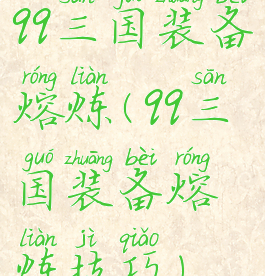 99三国装备
róng liàn sān
熔炼(99三
guó zhuāng bèi róng
国装备熔
liàn jì qiǎo
炼技巧)